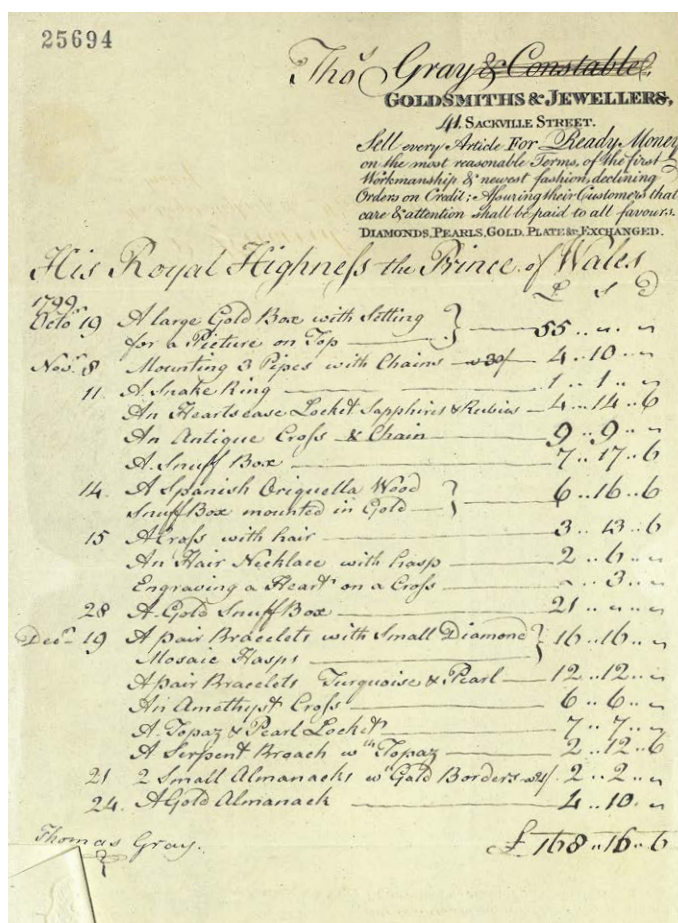 25694
Thos Gray & Constable,
GOLDSMITHS & JEWELLERS,
41, SACKVILLE STREET.
Sell every Article For Ready Money
on the most reasonable Terms, of the first
Workmanship & newest fashion, declining
Orders on Credit; Assuring their Customers that
care & attention shall be paid to all favours.
DIAMONDS, PEARLS, GOLD, PLATE &c EXCHANGED.
His Royal Highness the Prince of Wales
1799 £ S D
Octor 19 A large Gold Box with Setting
for a Picture on Top 55 .. " .. "
Novr 8 Mounting 3 Pipes with Chains a 30/ 4 .. 10 .. "
11. A Snake Ring 1 .. 1 .. "
An Heartsease Locket Sapphires & Rubies 4 .. 14 .. 6
An Antique Cross & Chain 9 .. 9 .. "
A Snuff Box 7 .. 17 .. 6
14. A Spanish Oriquella Wood
Snuff Box mounted in Gold 6 .. 16 .. 6
15 A Cross with hair 3 .. 13 .. 6
An Hair Necklace with hasp 2 .. 6 .. "
Engraving a Heart on a Cross " .. 3 .. "
28 A Gold Snuff Box 21 .. " .. "
Decr 19 A pair Bracelets with Small Diamond
Mosaic Hasps 16 .. 16 .. "
A pair Bracelets Turquoise & Pearl 12 .. 12 .. "
An Amethyst Cross 6 .. 6 .. "
A Topaz & Pearl Locket 7 .. 7 .. "
A Serpent Broach wth Topaz 2 .. 12 .. 6
21 2 Small Almanacks wth Gold Borders a 21/ 2 .. 2 .. "
24. A Gold Almanack 4 .. 10 .. "
Thomas Gray. £ 168 .. 16 .. 6